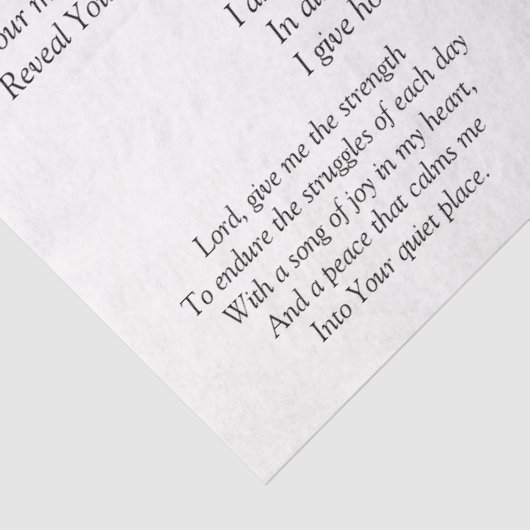 our m
Reveal You
I a
In a
I give ho
Lord, give me the strength
To endure the struggles of each day
With a song of joy in my heart,
And a peace that calms me
Into Your quiet place.